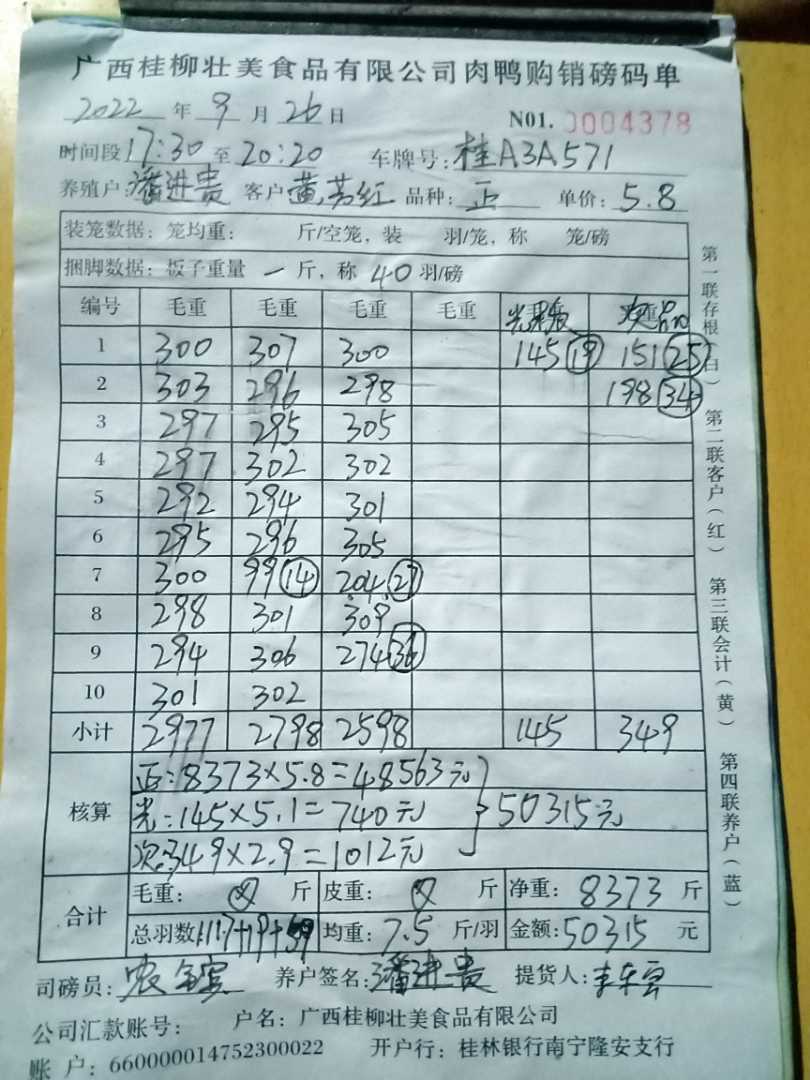 广西桂柳壮美食品有限公司肉鸭购销磅码单
2022 年 9 月 26 日 N01. 0004378
时间段 17:30 至 20:20 车牌号: 桂A3A571
养殖户: 潘进贵 客户 黄芳红 品种: 正 单价: 5.8
装笼数据: 笼均重: 斤/空笼, 装 羽/笼, 称 笼/磅
捆脚数据: 板子重量 一 斤, 称 40 羽/磅
编号 毛重 毛重 毛重 毛重
1 300 307 300 145 19 151 25
2 303 296 298 198 34
3 297 295 305
4 297 302 302
5 292 294 301
6 295 296 305
7 300 99 14 204 27
8 298 301 309
9 294 306 274 36
10 301 302
小计 2977 2798 2598 145 349
核算
正:8373×5.8=48563元
光:145×5.1=740元 50315元
次:349×2.9=1012元
合计
毛重: 斤 皮重: 斤 净重: 8373 斤
总羽数 1117+19+59 均重: 7.5 斤/羽 金额: 50315 元
司磅员: 养户签名: 潘进贵 提货人:
公司汇款账号: 户名: 广西桂柳壮美食品有限公司
账 户: 660000014752300022 开户行: 桂林银行南宁隆安支行
第一联存根(白) 第二联客户(红) 第三联会计(黄) 第四联养户(蓝)